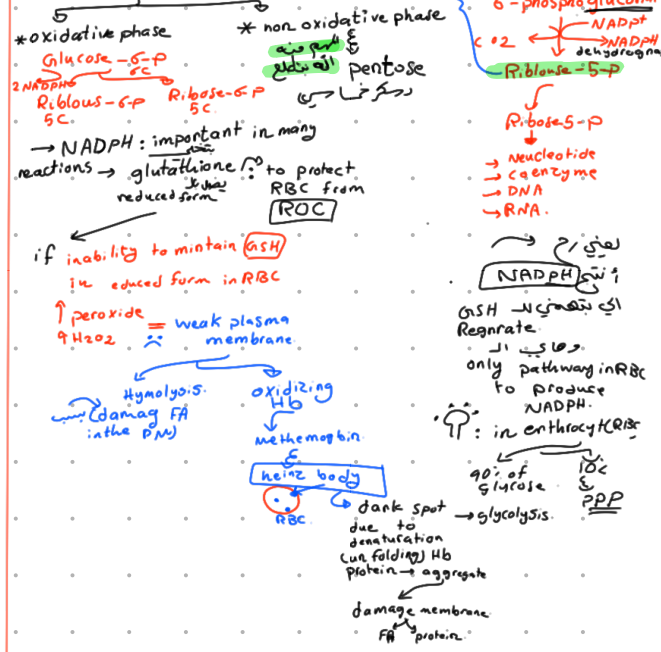 *oxidative phase
Glucose-6-P
6C
2NADPH
Riblous-5-P
5C.
Ribose-6-P
5C
* non oxidative phase
&
pentose
→ NADPH: important in many
reactions → glutathione to protect
reduced form RBC from
ROC
if inability to mintain GSH
in educed form in RBC
↑ peroxide
↑ H2O2 = weak plasma
membrane
Hymolysis.
(damag FA
inthe PM)
oxidizing
Hb
methemogbin
&
heinz body
RBC
dark spot
due to
denaturation
(unfolding) Hb
protein → aggregate
damage membrane
FA protein
6-phosphogluconat
NADP+
CO2
NADPH
dehydrogna
Riblouse-5-P
Ribose5-P
→ Neucleotide
→ coenzyme
→ DNA
→ RNA.
يعني رح
أنتج NADPH
GSH اي بتهمني لـ
Regnrate.
وهاي الـ
only pathway in RBC
to produce
NADPH.
: in erithrocyt(RBC
90% of
glycose
→ glycolysis.
10%
&
PPP